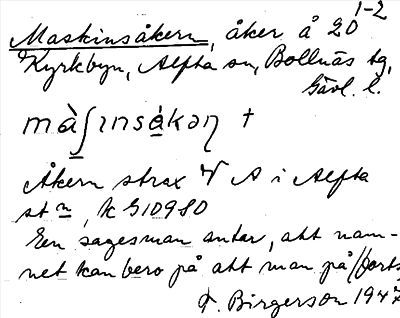 Maskinsåkern, åker å 20 1-2
Kyrkbyn, Alfta sn, Bollnäs tg,
Gävl. l.
màʃɪnsàkəɳ +
Åkern strax V A i Alfta
st n, k 510980
En sagesman antar, att nam-
net kan bero på att man på //forts
F. Birgerson 1947